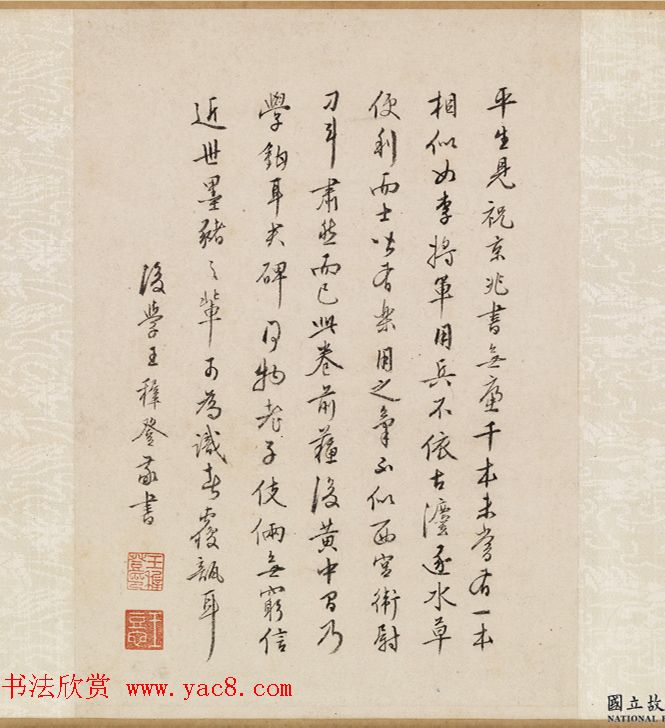 平生見祝京兆書無慮千本未嘗有一本
相似如李將軍用兵不依古灋逐水草
便利而士皆有樂用之氣不似西宮衛尉
刁斗肅然而已此卷前蘇後黃中間乃
學鉤耳夫碑何物老子伎倆無窮信
近世墨豬之輩可為識者覆瓿耳
後學王穉登敬書
王穉登印
书法欣赏 www.yac8.com
國立故
NATIONAL